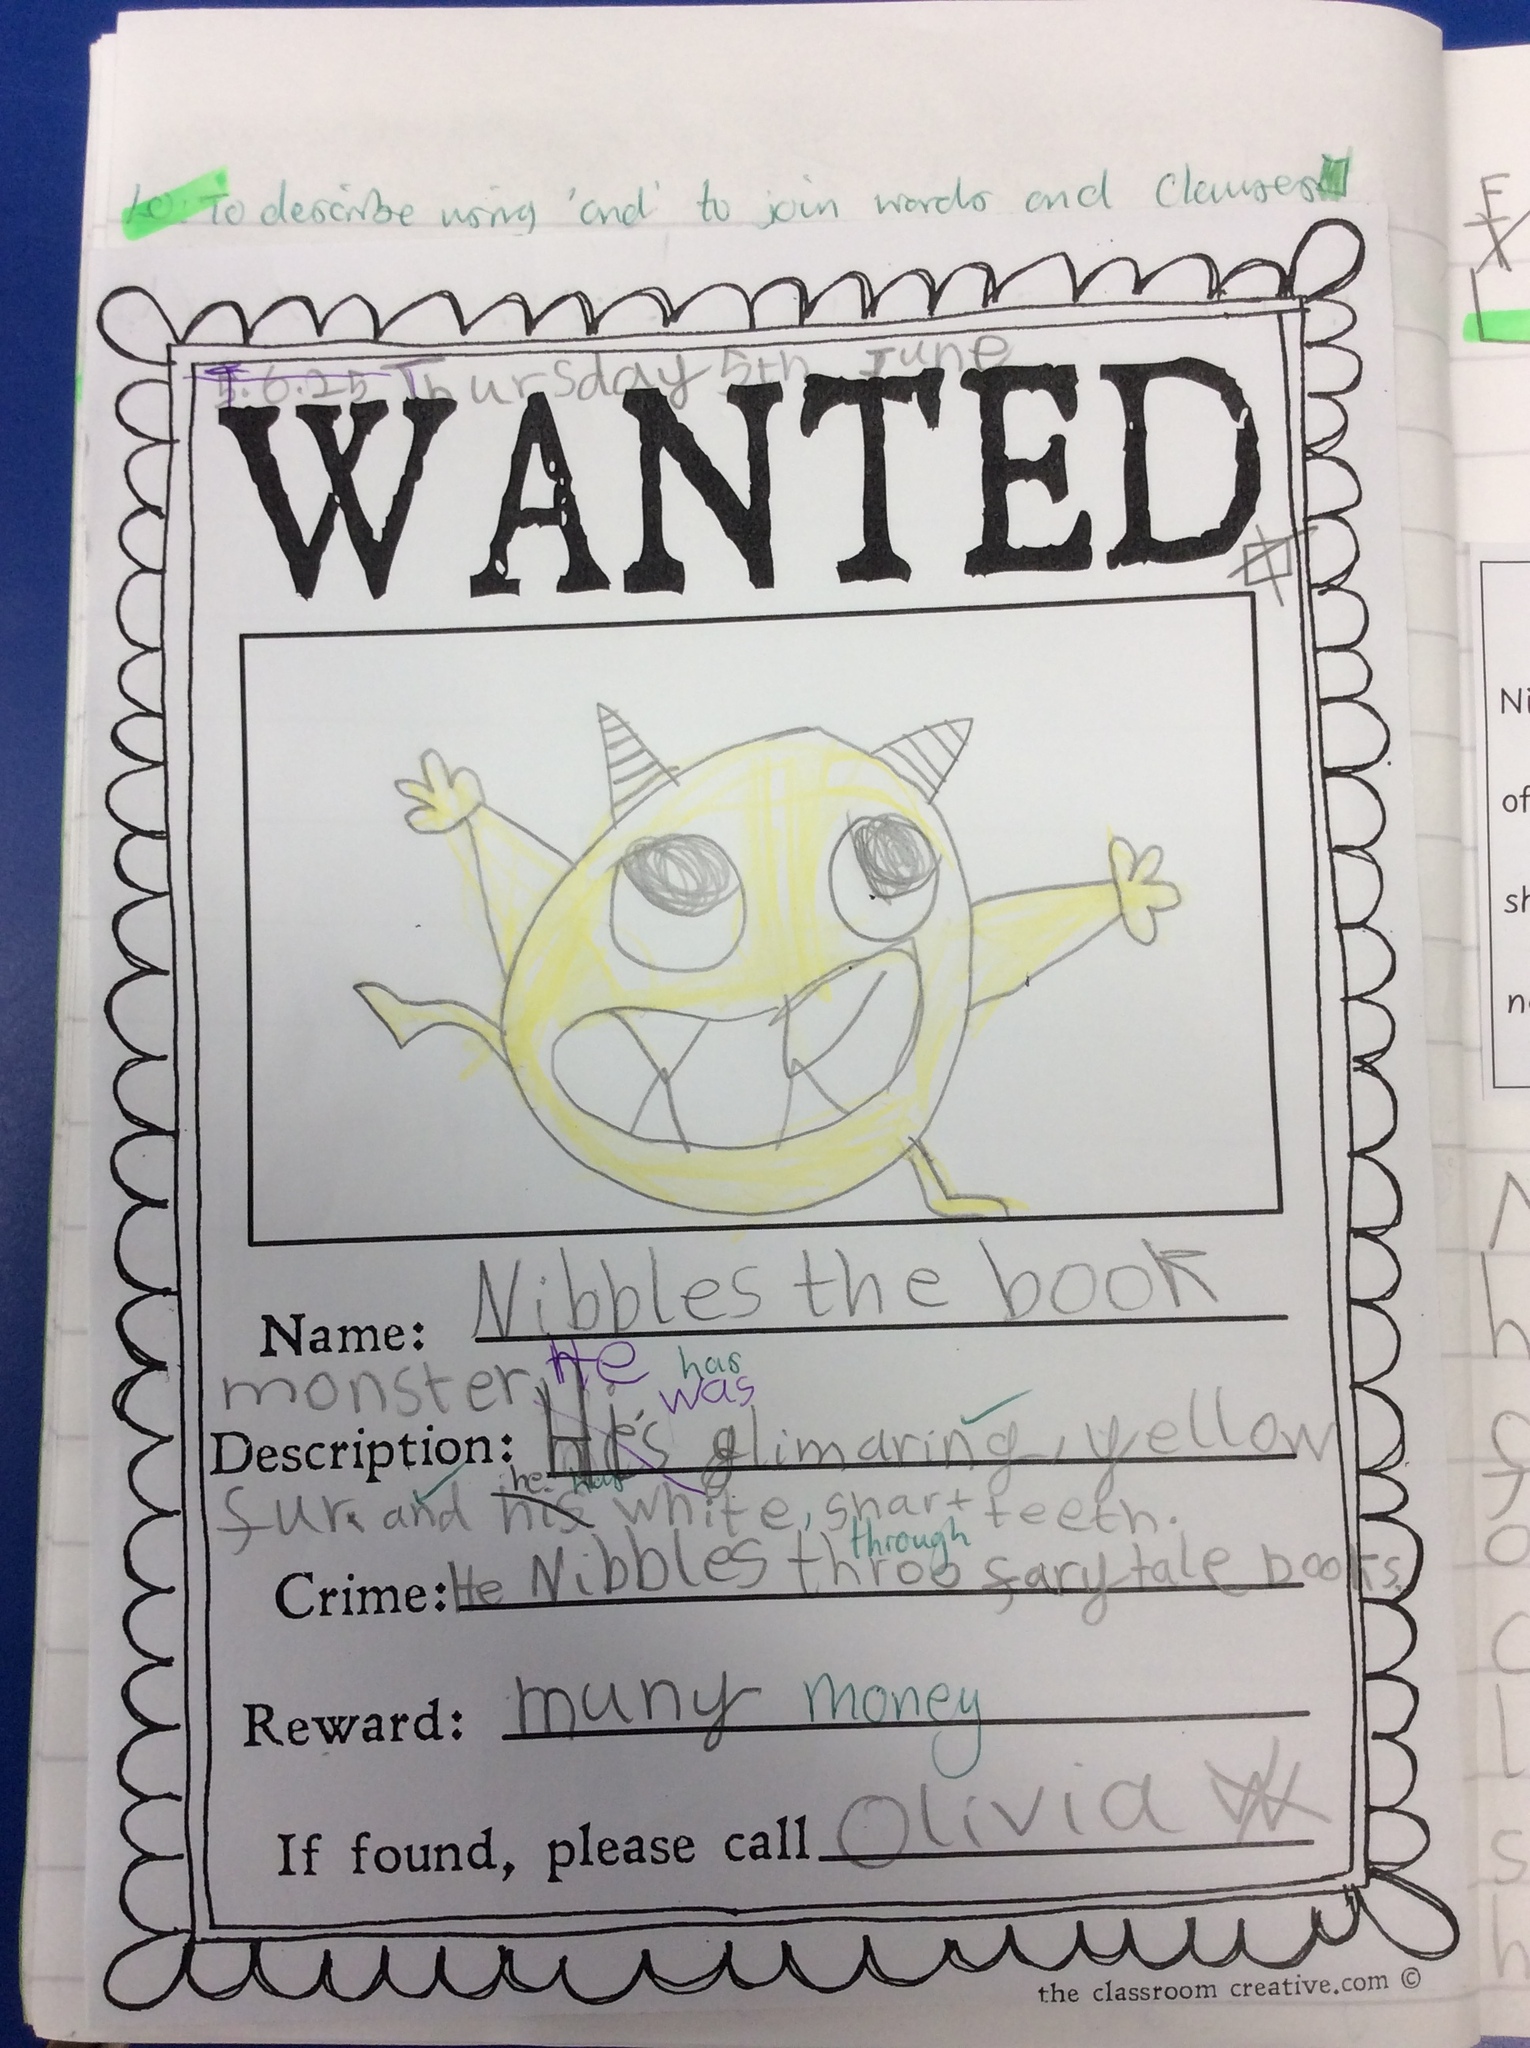 LO: To describe using 'and' to join words and clauses
5.6.25 Thursday 5th June
WANTED
Name: Nibbles the book
monster.
He has
was
Description: He's glimaring, yellow
he has
fur. and his white, shart teeth.
through
Crime: He Nibbles throo farytale books.
Reward: muny money
If found, please call Olivia W
the classroom creative.com ©
Ni
of
sh